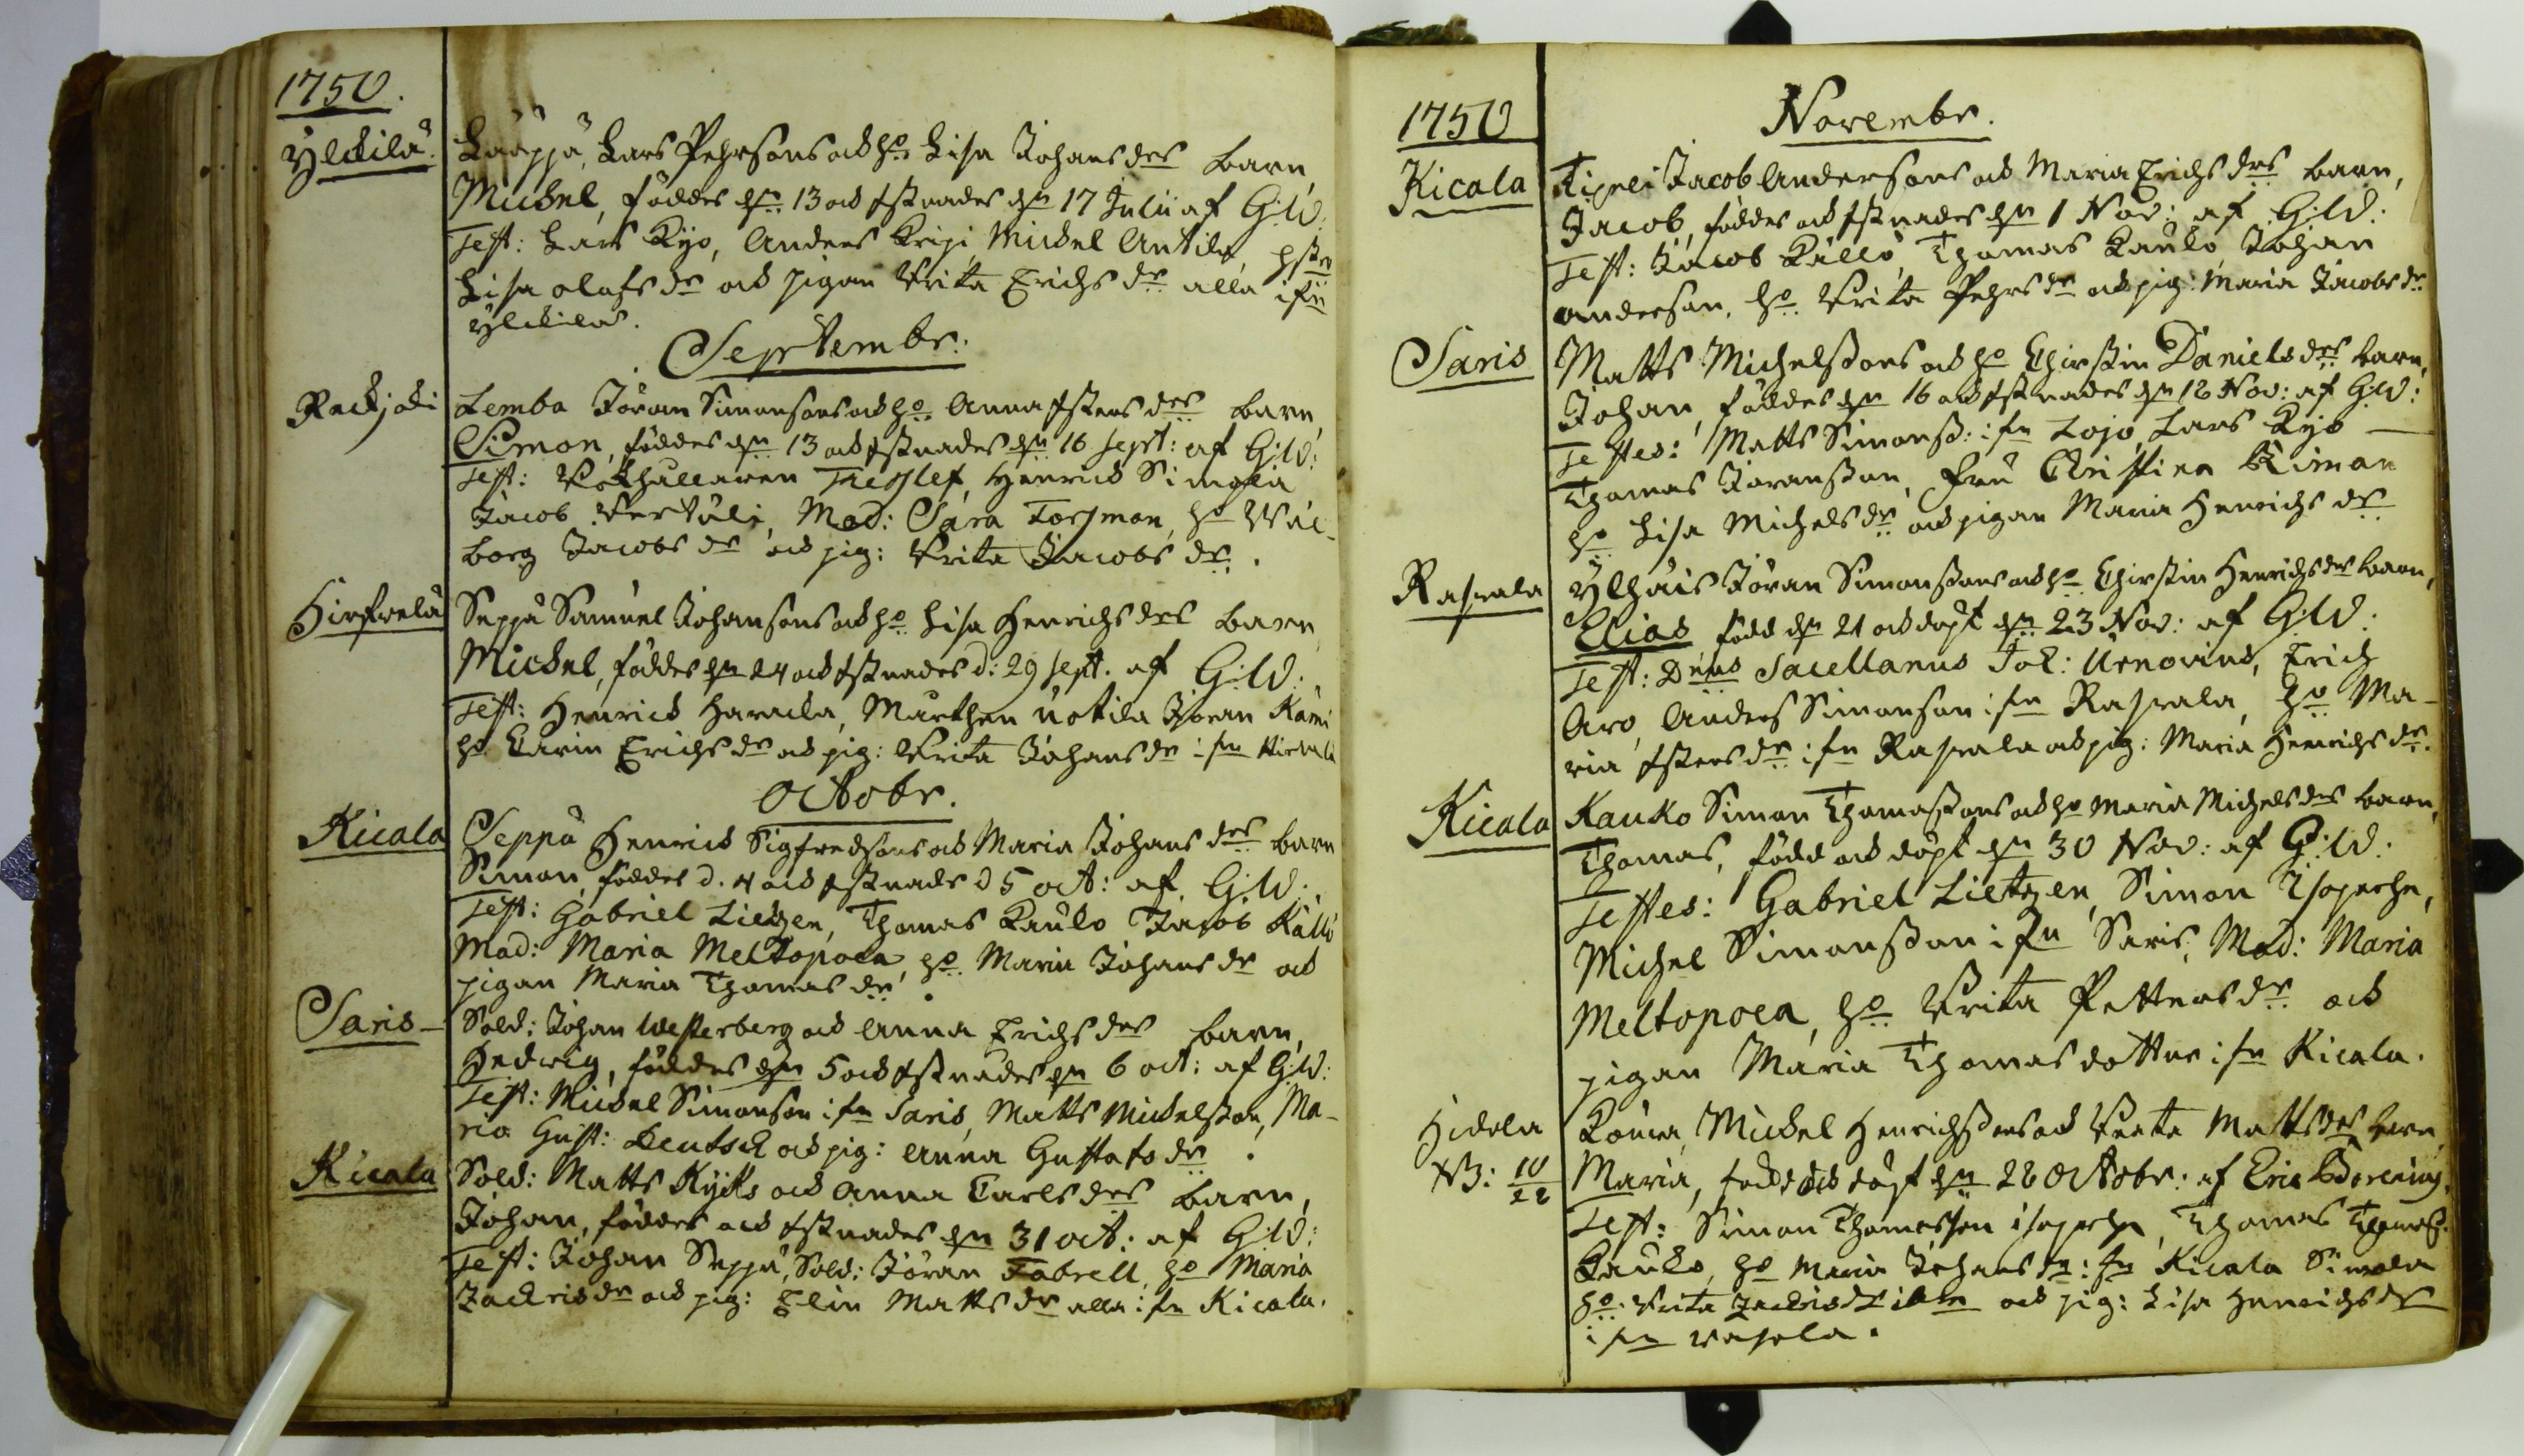 1750.
Ylckilä. Kääppä, Lars Pehrsons och ho: Lisa Johans drs barn,
Michel, föddes dn 13 och Xstnades dn 17 Julii af G:ld:
Test: Lars Kyö, Anders Kripi, Michel Antila, hstr
Lisa Olofs dr och pigan Brita Erichs dr alla ifrn
Ylckilä.
Septembr:
Rackjoki Lemba Jöran Simonsons och ho: Anna Xsters drs barn,
Simon, föddes dn 13 och Xstnades dn 16 Sept: af G:ld:
Test: Theslef, Henrick Simola
Jacob Mad: Sara Forsman, ho Wal-
borg Jacobs dr och pig: Brita Jacobs dr.
Hirfwelä Seppä Samuel Johansons och ho: Lisa Henrichs drs barn
Michel, föddes dn 24 och Xstnades d: 29 Sept. af G:ld:
Test: Henrick Haracka, Marthen Uotila Jöran Kämi
ho Carin Erichs dr och pig: Brita Johans dr ifrn Hirvelä
Octobr.
Kicala Seppä Henrick Sigfredsons och Maria Johans drs barn
Simon, föddes d. 4 och Xstnads d 5 oct: af G:ld:
Test: Gabriel Lietzen, Thomas Kauko Jacob Källö
Mad: Maria Meltopoea, ho: Maria Johans dr och
pigan Maria Thomas dr.
Saris Sold: Johan Westerberg och Anna Erichs drs barn,
Hedwig, föddes dn 5 och Xstnades dn 6 oct: af G:ld:
Test: Michel Simonson ifrn Saris, Matts Michelsson, Ma-
ria Gust: Deutsch och pig: Anna Gustafs dr.
Kicala Sold: Matts Kycks och Anna Carls drs barn,
Johan, föddes och Xstnades dn 31 oct: af G:ld:
Test: Johan Seppä, Sold: Jöran Fabrell, ho Maria
Zachris dr och pig: Elin Matts dr alla ifrn Kicala.
1750
Novembr.
Kicala Jacob Andersons och Maria Erichs drs barn,
Jacob, föddes och Xstnades dn 1 Nov: af G:ld:
Test: Jacob Källö, Thomas Kauko, Johan
Anderson, ho: Brita Pehrs dr och pig: Maria Jacobs dr
Saris Matts Michelssons och ho Chirstin Daniels drs barn,
Johan, föddes dn 16 och Xstnades dn 18 Nov: af G:ld:
Testes: Matts Simonss: ifrn Lojo, Lars Kyö
Thomas Jöransson, fru Christina Kiman
ho Lisa Michels dr och pigan Maria Henrichs dr
Raswala Ylhäis Jöran Simonssons och ho Chirstin Henrichs drs barn,
Elias född dn 21 och döpt dn 23 Nov: af G:ld:
Test: Dnus Sacellanus Joh: Urnovius, Erich
Aro, Anders Simonson ifrn Raswala, ho Ma-
ria Xsters dr ifrn Raswala och pig: Maria Henrichs dr.
Kicala Kauko Simon Thomassons och ho Maria Michels drs barn,
Thomas, född och döpt dn 30 Nov: af G:ld:
Testes: Gabriel Lietzen, Simon Isoperhe,
Michel Simonsson ifrn Saris, Mad: Maria
Meltopoea, ho Brita Petters dr och
pigan Maria Thomas dotter ifrn Kicala.
Hidola Michel Henrichssons och Beata Matts drs barn,
NB: 10/28 Maria, född och döpt dn 28 Octobr: af Eric Borenius.
Test: Simon Thomasson Isoperhe, Thomas Thomass.
Kauko, ho Maria Johans dr: frn Kicala Simola
ho: Brita Zachris dr och pig: Lisa Henrichs dr
ifrn